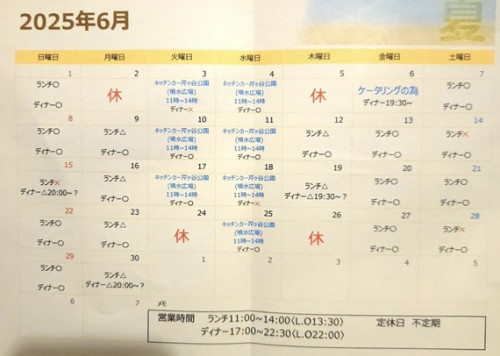 2025年6月
夏
日曜日 月曜日 火曜日 水曜日 木曜日 金曜日 土曜日
1 2 3 4 5 6 7
ランチ〇 休 キッチンカー芹ヶ谷公園 キッチンカー芹ヶ谷公園 休 ケータリングの為 ランチ〇
(噴水広場) (噴水広場)
11時~14時 11時~14時
ディナー〇 ディナー× ディナー〇 ディナー19:30~ ディナー〇
8 9 10 11 12 13 14
ランチ〇 ランチ△ キッチンカー芹ヶ谷公園 キッチンカー芹ヶ谷公園 ランチ△ ランチ〇 ランチ×
(噴水広場) (噴水広場)
11時~14時 11時~14時
ディナー〇 ディナー〇 ディナー〇 ディナー〇 ディナー〇 ディナー〇 ディナー〇
15 16 17 18 19 20 21
ランチ× ランチ△ キッチンカー芹ヶ谷公園 キッチンカー芹ヶ谷公園 ランチ△ ランチ〇 ランチ〇
ディナー△20:00~? (噴水広場) (噴水広場) ディナー△19:30~?
11時~14時 11時~14時
ディナー〇 ディナー〇 ディナー× ディナー〇 ディナー〇
22 23 24 25 26 27 28
ランチ〇 ランチ△ 休 キッチンカー芹ヶ谷公園 休 ランチ〇 ランチ×
(噴水広場)
11時~14時
ディナー〇 ディナー〇 ディナー〇 ディナー〇 ディナー〇
29 30 1 2 3 4 5
ランチ〇 ランチ△
ディナー〇 ディナー△20:00~?
6 7 メモ
営業時間 ランチ11:00~14:00(L.O13:30) 定休日 不定期
ディナー17:00~22:30(L.O22:00)